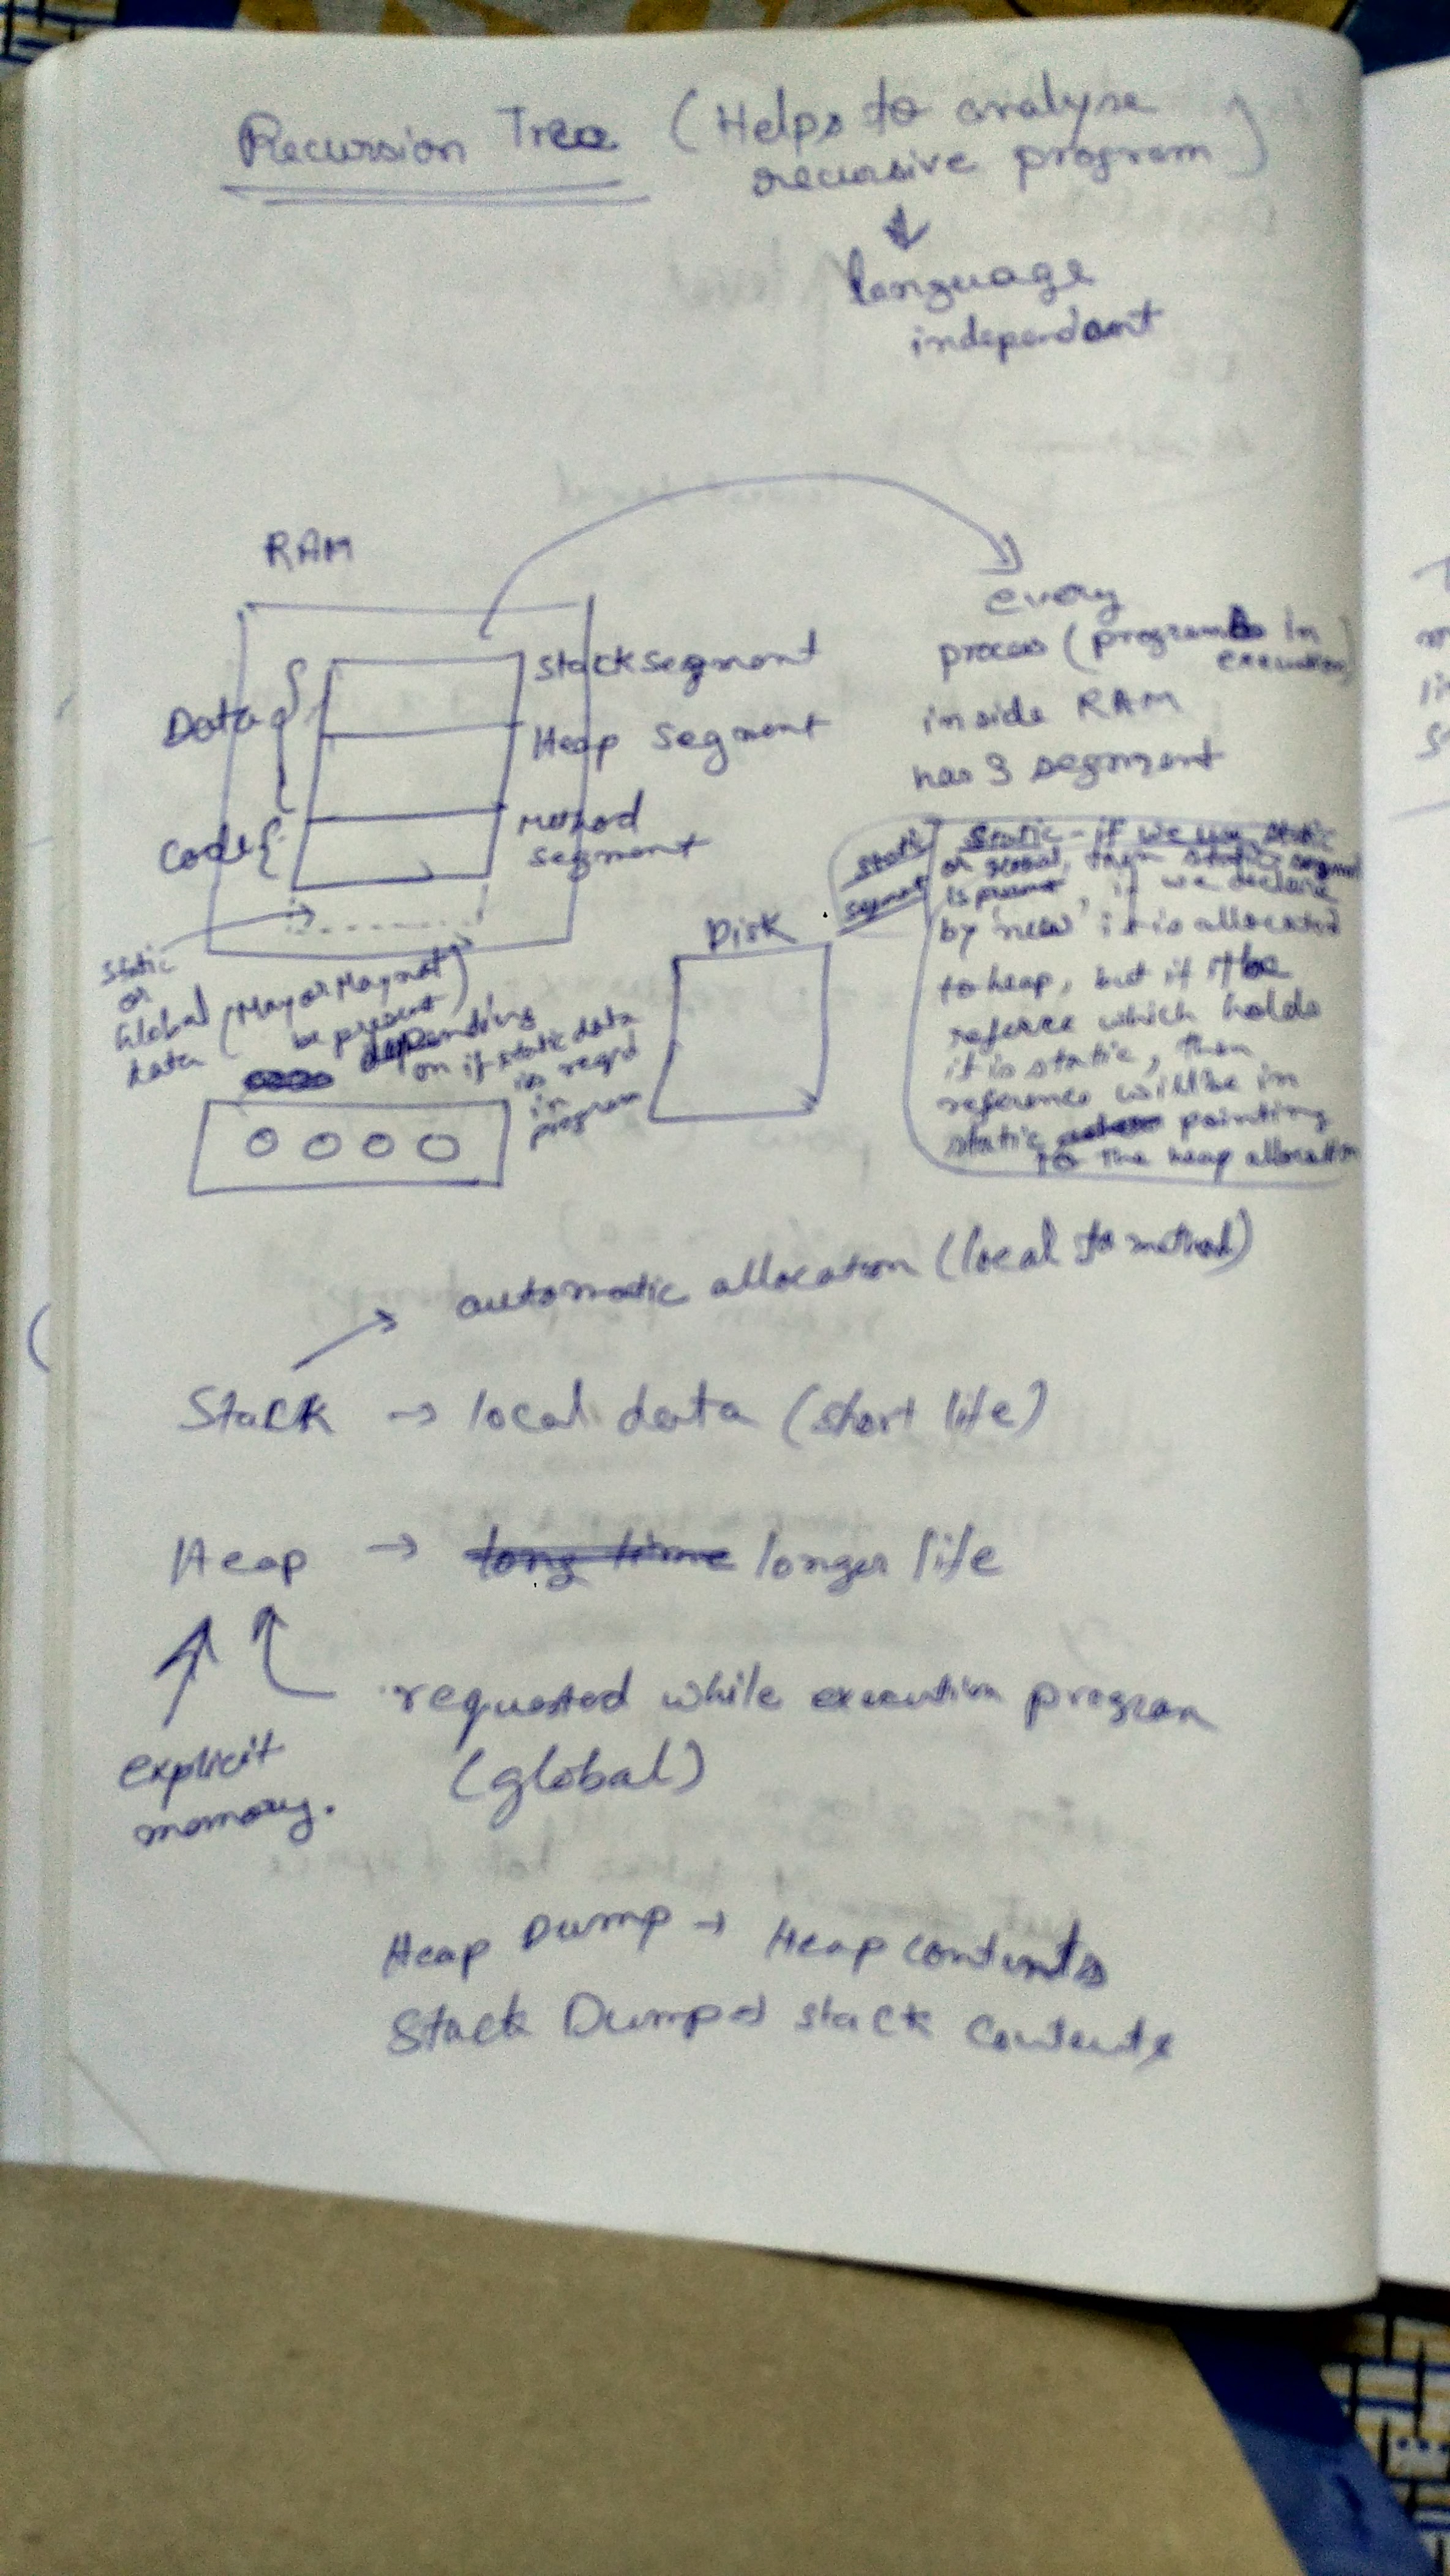 Recursion Tree (Helps to analyse
recursive program)
language
independent
RAM
stack segment
Heap segment
Method
segment
Data
Code
every
process (programs in
execution)
inside RAM
has 3 segment
static
or
Global
data
(May or May not
be present)
depending
on if static data
is reqd
in
program
Disk
static
segment
static - if we use static
or global, then static segment
is present, if we declare
by 'new' it is allocated
to heap, but if the
refernce which holds
it is static, then
reference will be in
static pointing
to the heap allocation
automatic allocation (local to method)
Stack → local data (short life)
Heap → long time longer life
requested while execution program
(global)
explicit
memory.
Heap Dump → Heap contents
Stack Dump → stack contents